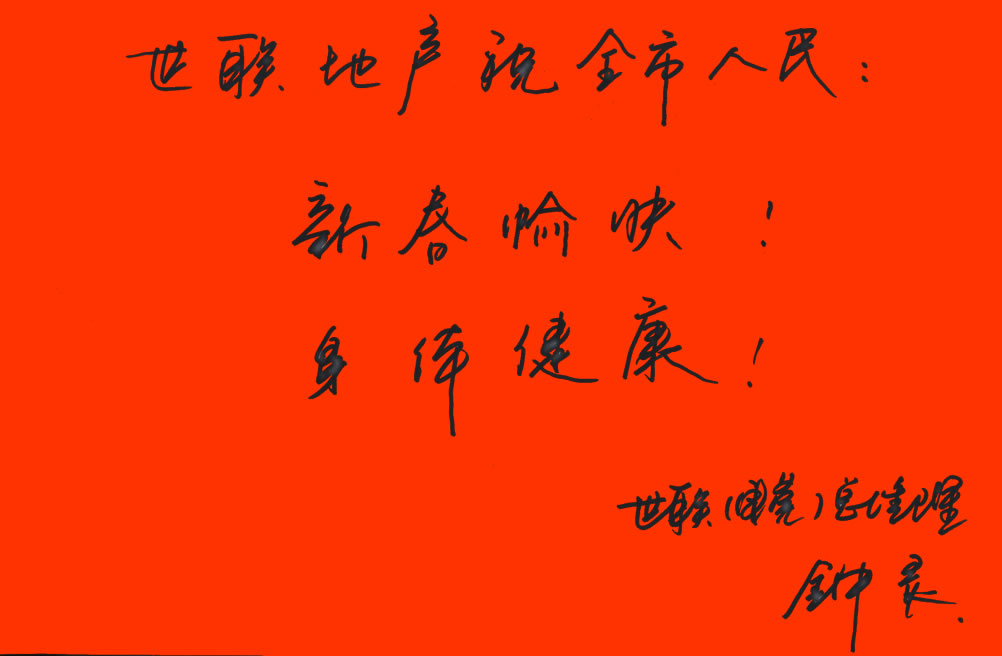 世联地产祝全市人民：
新春愉快！
身体健康！
世联（东莞）总经理
钟良